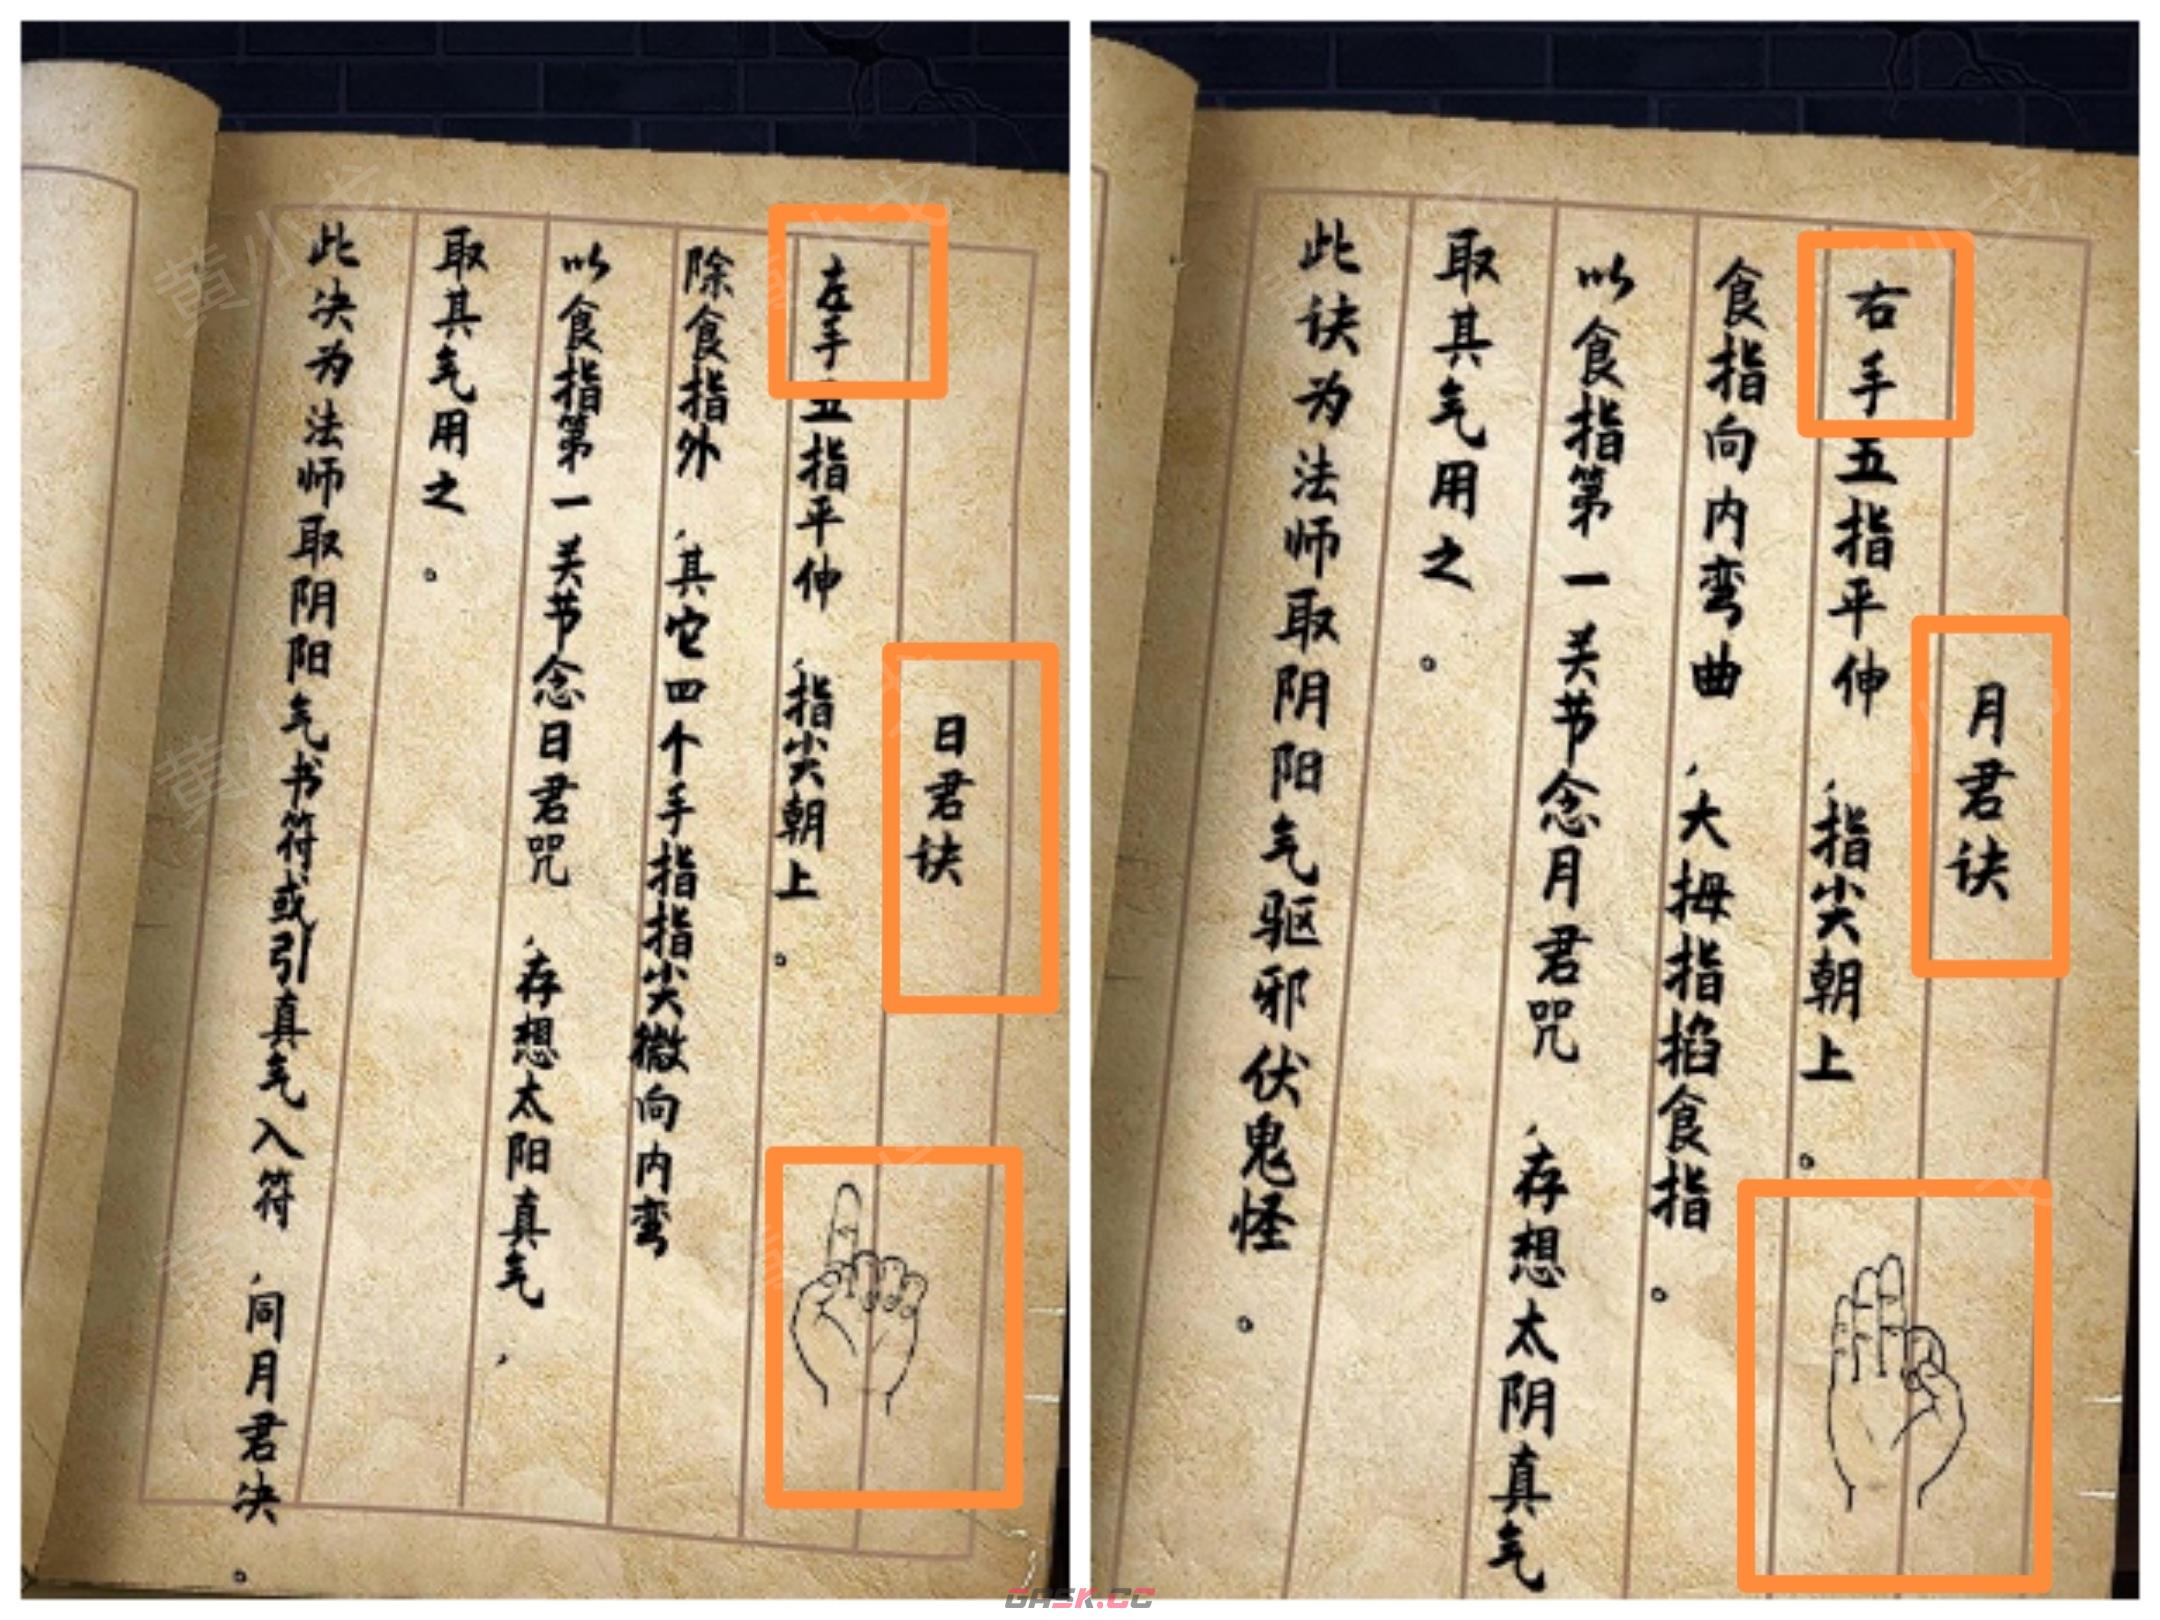 日君诀
左手五指平伸，指尖朝上。
除食指外，其它四个手指指尖微向内弯
以食指第一关节念日君咒，存想太阳真气，
取其气用之。
此决为法师取阴阳气书符或引真气入符，同月君决。
月君诀
右手五指平伸，指尖朝上。
食指向内弯曲，大拇指掐食指。
以食指第一关节念月君咒，存想太阴真气
取其气用之。
此诀为法师取阴阳气驱邪伏鬼怪。
黄小戈
GASK.CC